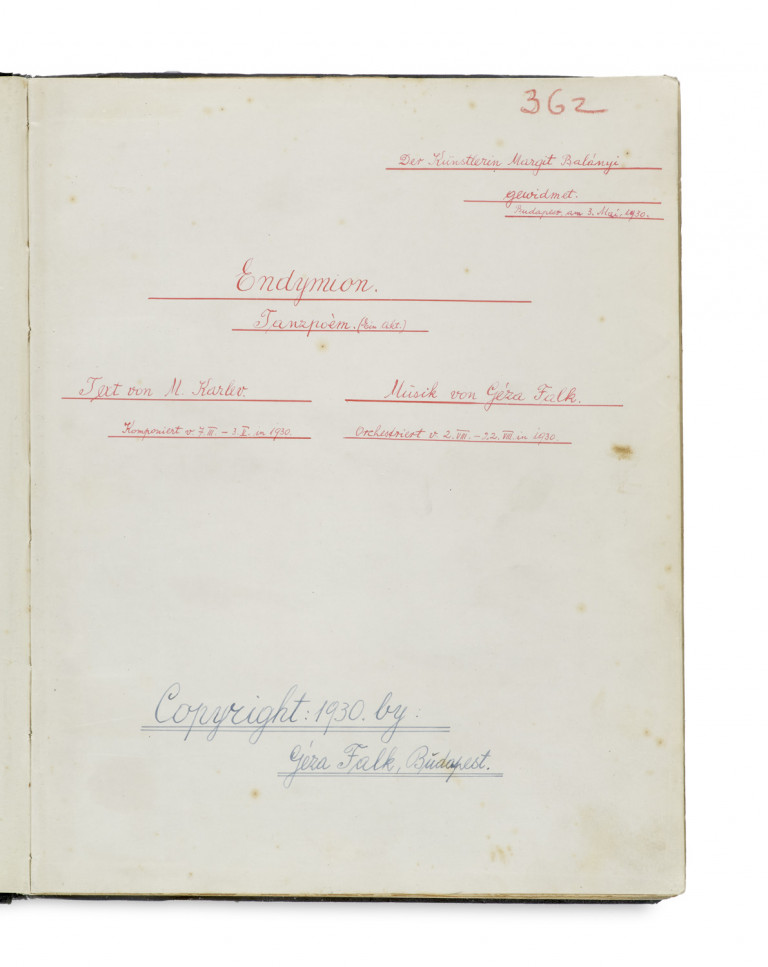 362
Der Künstlerin Margit Balányi
gewidmet.
Budapest, am 3. Mai. 1930.
Endymion.
Tanzpoèm. (Ein Akt.)
Text von M. Karlev.
Musik von Géza Falk.
Komponiert v. 7. II. – 3. V. in 1930.
Orchestriert v. 2. VII. – 22. VIII. in 1930.
Copyright: 1930. by:
Géza Falk, Budapest.